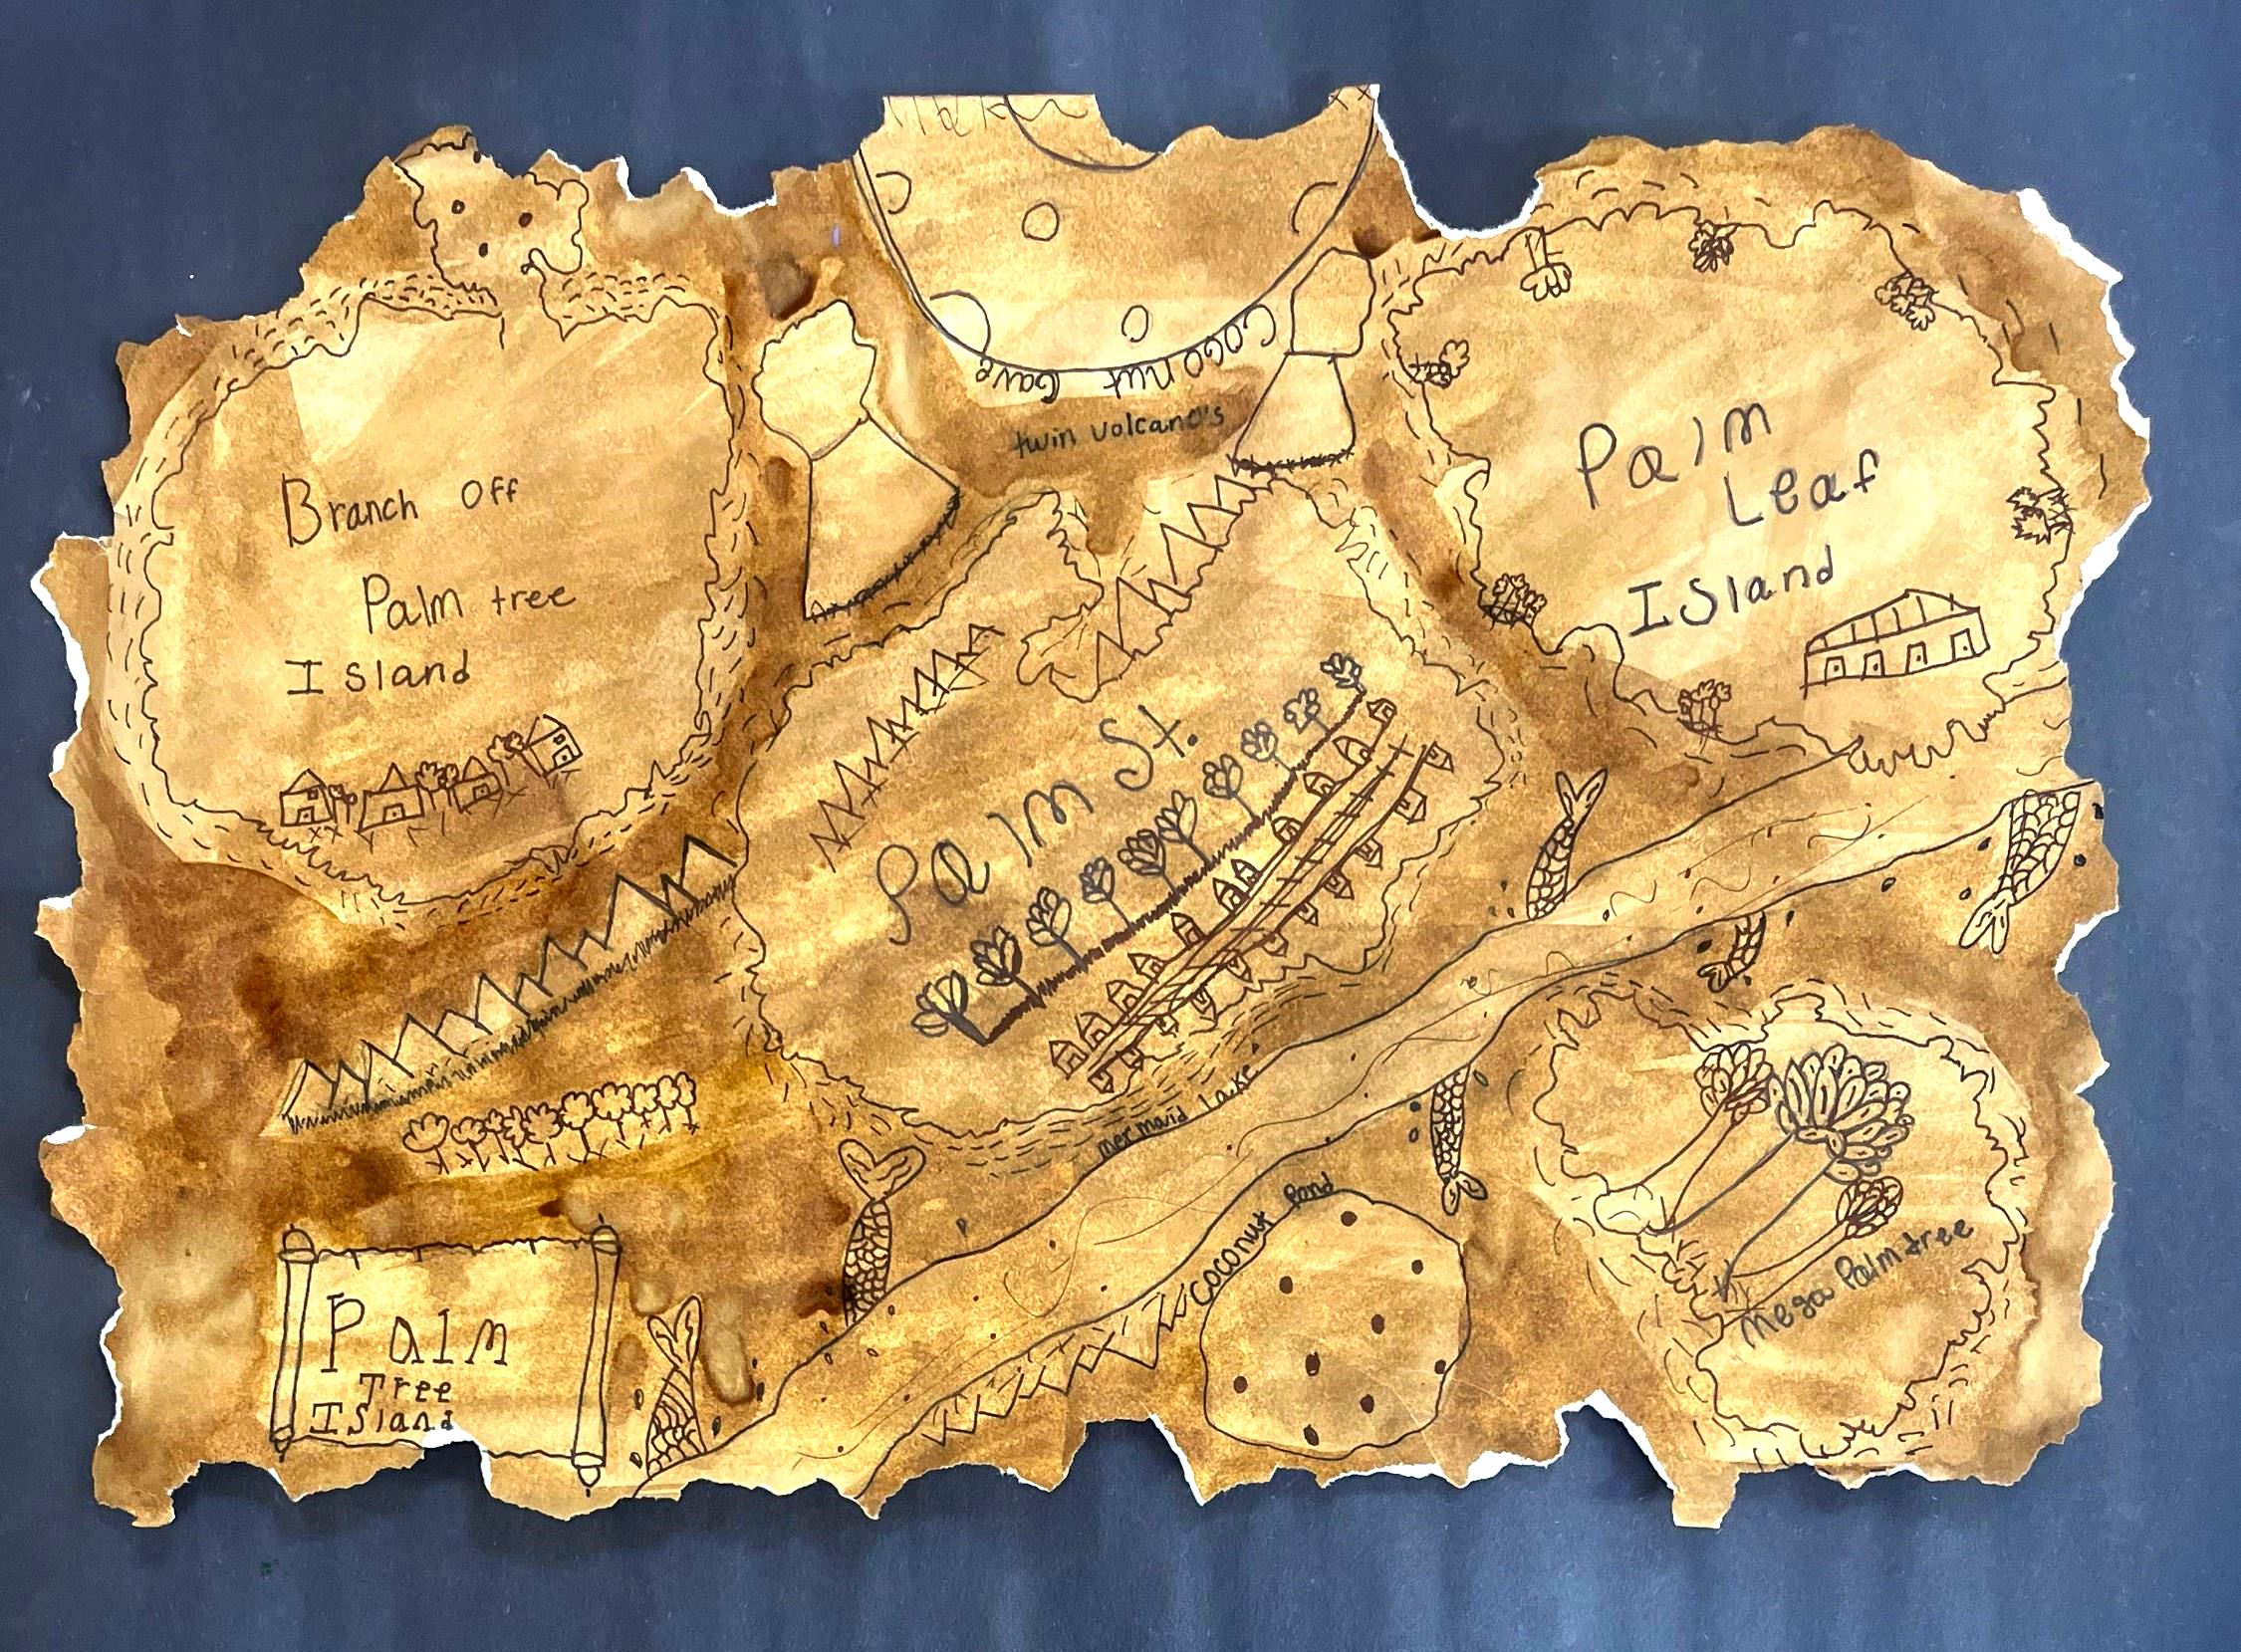 Coconut Cave
twin volcano's
Branch Off
Palm tree
Island
Palm
Leaf
Island
Palm St.
mermaid Lake
Coconut Pond
Mega Palm tree
Palm
Tree
Island